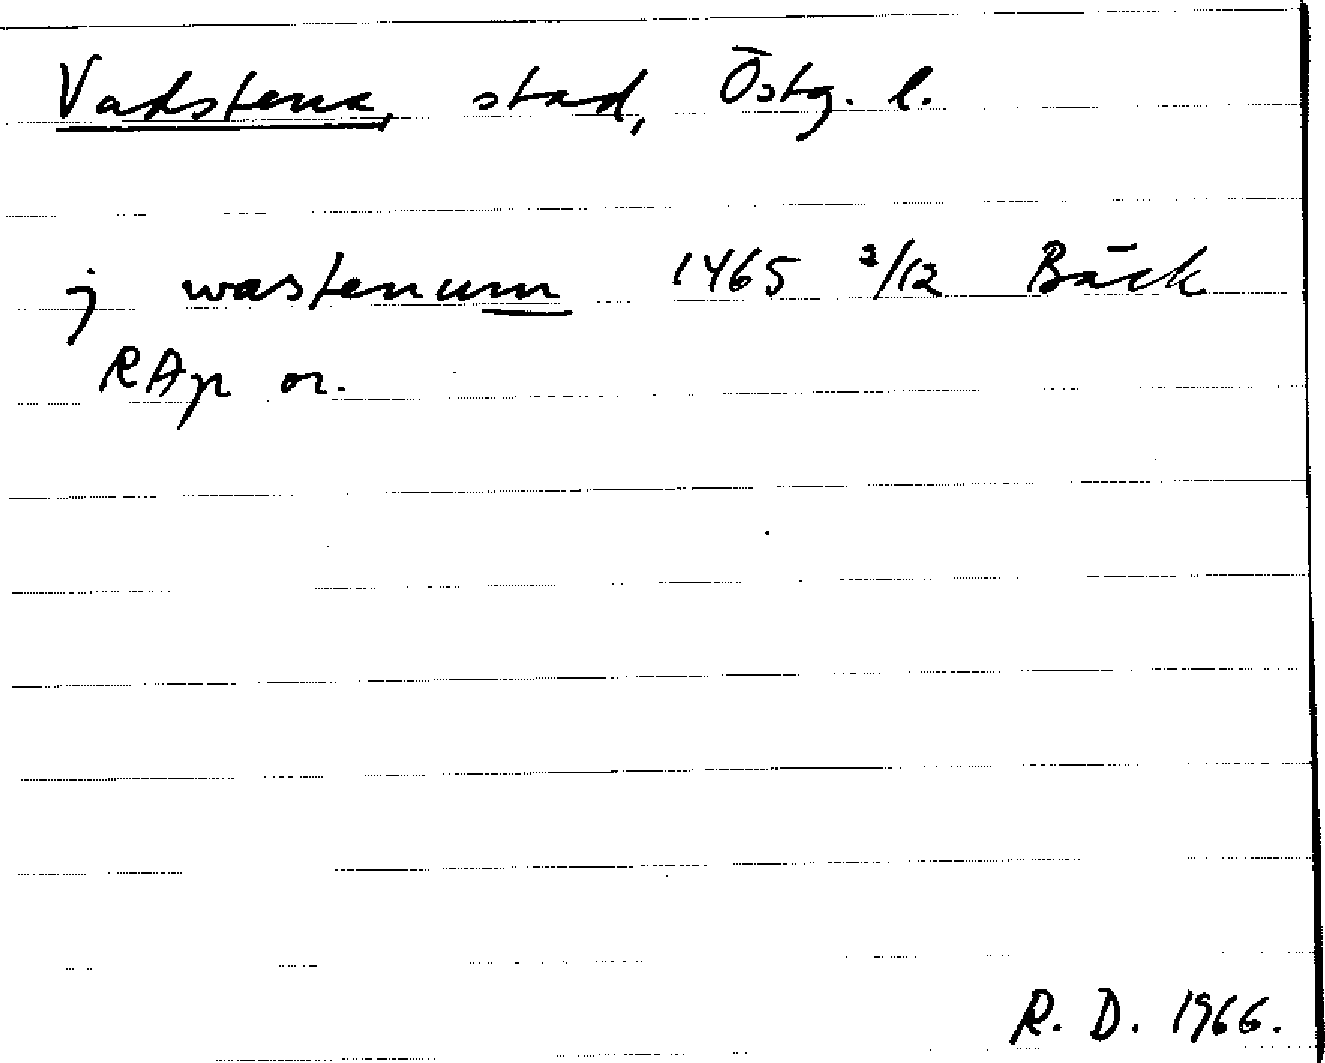 Vadstena, stad, Östg. l.
j wastenum 1465 3/12 Bäck
RAp or.
R. D. 1966.